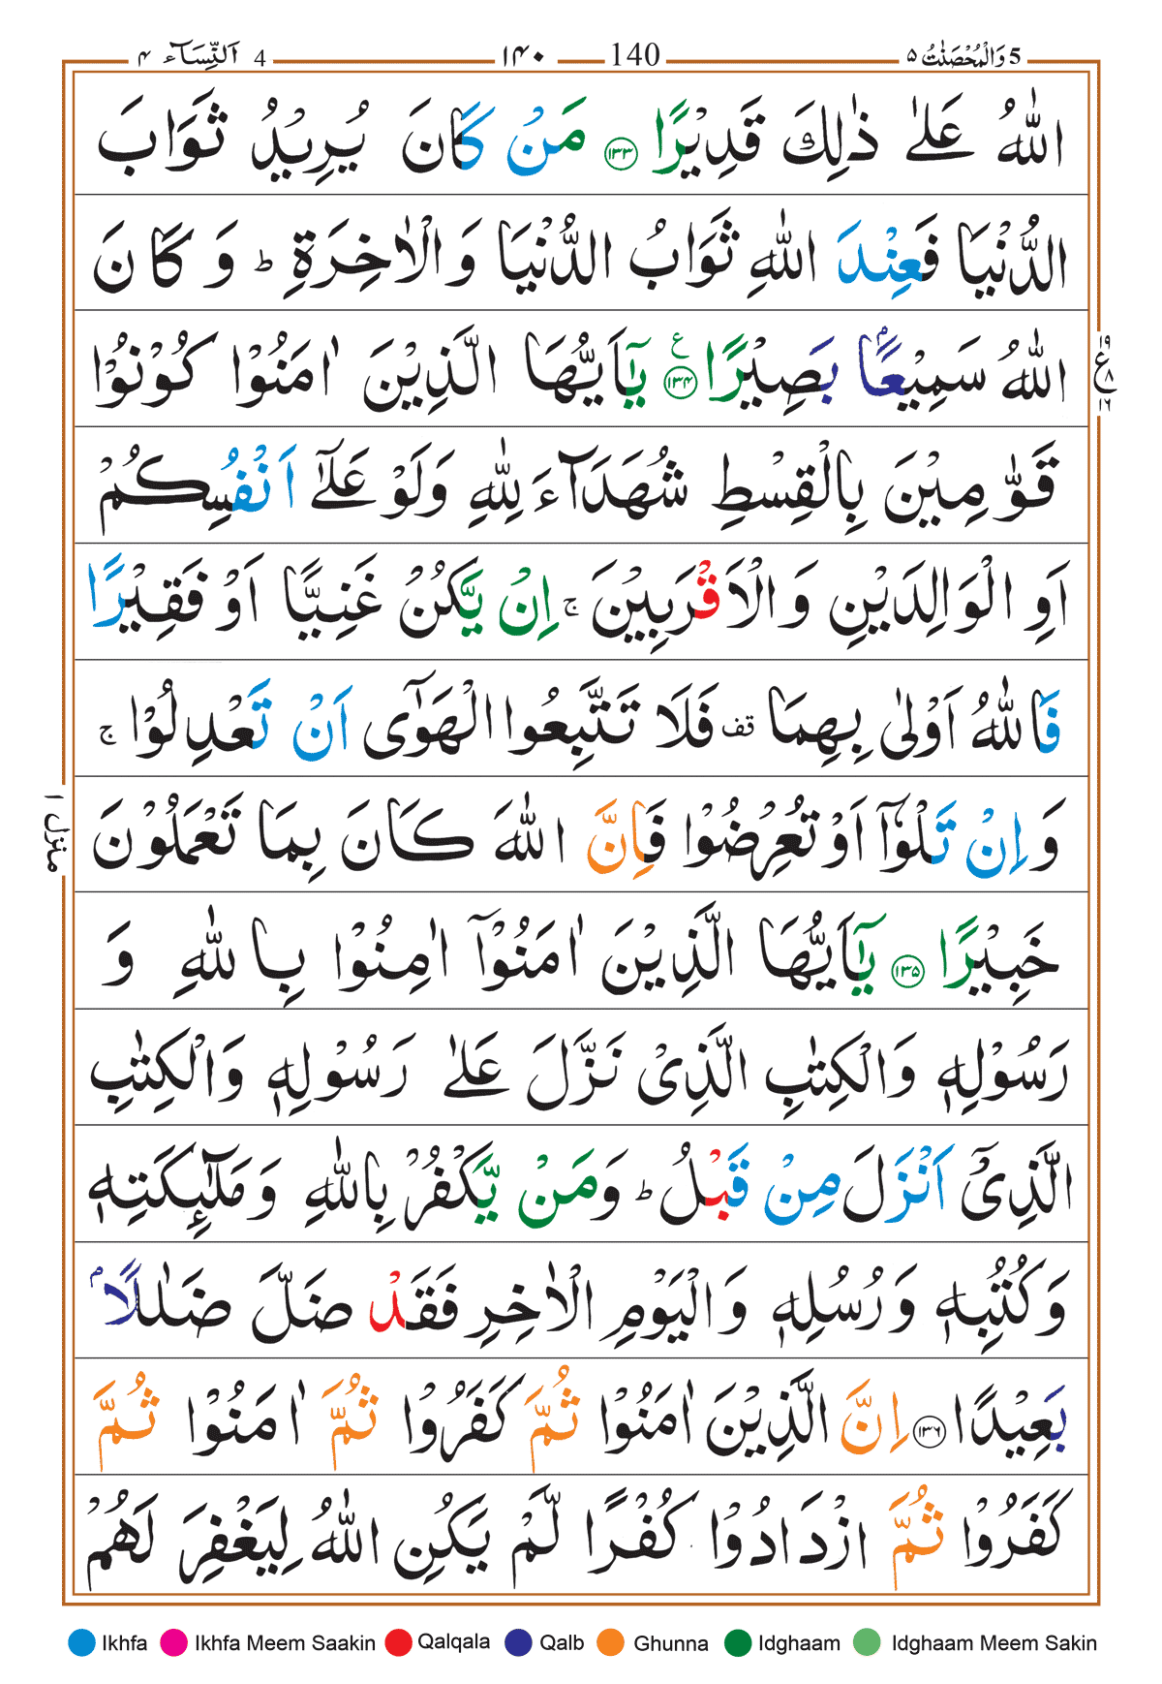 5 وَالْمُحْصَنٰتُ ۵ 140 ۱۴۰ 4 اَلنِّسَآء ۴
اللّٰهُ عَلٰى ذٰلِكَ قَدِيْرًا ۝۱۳۳ مَنْ كَانَ يُرِيْدُ ثَوَابَ
الدُّنْيَا فَعِنْدَ اللّٰهِ ثَوَابُ الدُّنْيَا وَالْاٰخِرَةِ ؕ وَكَانَ
اللّٰهُ سَمِيْعًۢا بَصِيْرًا ۝۱۳۴ ع يٰۤاَيُّهَا الَّذِيْنَ اٰمَنُوْا كُوْنُوْا
۱۹ ع ۸ ۱۶
قَوّٰمِيْنَ بِالْقِسْطِ شُهَدَآءَ لِلّٰهِ وَلَوْ عَلٰۤى اَنْفُسِكُمْ
اَوِ الْوَالِدَيْنِ وَالْاَقْرَبِيْنَ ۚ اِنْ يَّكُنْ غَنِيًّا اَوْ فَقِيْرًا
فَاللّٰهُ اَوْلٰى بِهِمَا قف فَلَا تَتَّبِعُوا الْهَوٰۤى اَنْ تَعْدِلُوْا ۚ
وَاِنْ تَلْوٗۤا اَوْ تُعْرِضُوْا فَاِنَّ اللّٰهَ كَانَ بِمَا تَعْمَلُوْنَ
منزل ۱
خَبِيْرًا ۝۱۳۵ يٰۤاَيُّهَا الَّذِيْنَ اٰمَنُوْۤا اٰمِنُوْا بِاللّٰهِ وَ
رَسُوْلِهٖ وَالْكِتٰبِ الَّذِىْ نَزَّلَ عَلٰى رَسُوْلِهٖ وَالْكِتٰبِ
الَّذِىْۤ اَنْزَلَ مِنْ قَبْلُ ؕ وَمَنْ يَّكْفُرْ بِاللّٰهِ وَمَلٰٓئِكَتِهٖ
وَكُتُبِهٖ وَرُسُلِهٖ وَالْيَوْمِ الْاٰخِرِ فَقَدْ ضَلَّ ضَلٰلًاۢ
بَعِيْدًا ۝۱۳۶ اِنَّ الَّذِيْنَ اٰمَنُوْا ثُمَّ كَفَرُوْا ثُمَّ اٰمَنُوْا ثُمَّ
كَفَرُوْا ثُمَّ ازْدَادُوْا كُفْرًا لَّمْ يَكُنِ اللّٰهُ لِيَغْفِرَ لَهُمْ
Ikhfa Ikhfa Meem Saakin Qalqala Qalb Ghunna Idghaam Idghaam Meem Sakin